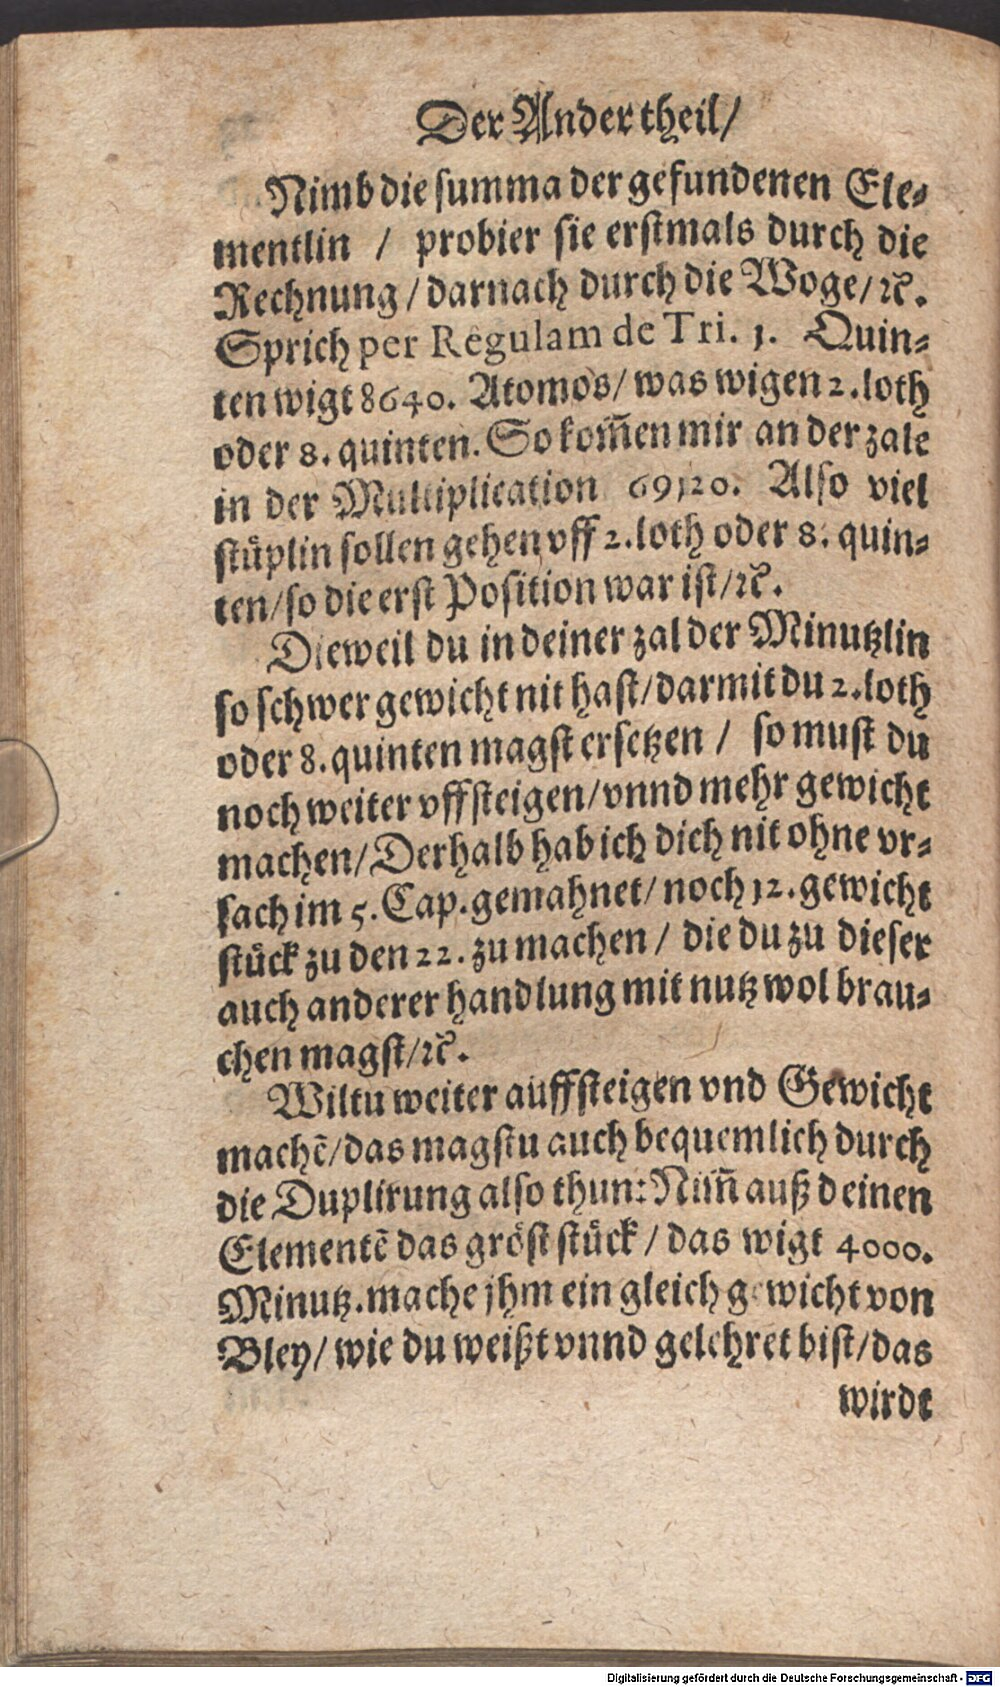 Der Ander theil/
Nimb die summa der gefundenen Ele⸗
mentlin / probier sie erstmals durch die
Rechnung/ darnach durch die Woge/ ꝛc̃.
Sprich per Regulam de Tri. 1. Quin⸗
ten wigt 8640. Atomos/ was wigen 2. loth
oder 8. quinten. So kom̃en mir an der zale
in der Multiplication 69120. Also viel
stüplin sollen gehen vff 2. loth oder 8. quin⸗
ten/ so die erst Position war ist/ ꝛc̃.
Dieweil du in deiner zal der Minutzlin
so schwer gewicht nit hast/ darmit du 2. loth
oder 8. quinten magst ersetzen / so must du
noch weiter vffsteigen/ vnnd mehr gewicht
machen/ Derhalb hab ich dich nit ohne vr⸗
sach im 5. Cap. gemahnet/ noch 12. gewicht
stück zu den 22. zu machen / die du zu dieser
auch anderer handlung mit nutz wol brau⸗
chen magst/ ꝛc̃.
Wiltu weiter auffsteigen vnd Gewicht
machẽ/ das magstu auch bequemlich durch
die Duplirung also thun: Nim̃ auß deinen
Elementẽ das gröst stück / das wigt 4000.
Minutz. mache jhm ein gleich gewicht von
Bley/ wie du weißt vnnd gelehret bist/ das
wirdt
Digitalisierung gefördert durch die Deutsche Forschungsgemeinschaft - DFG